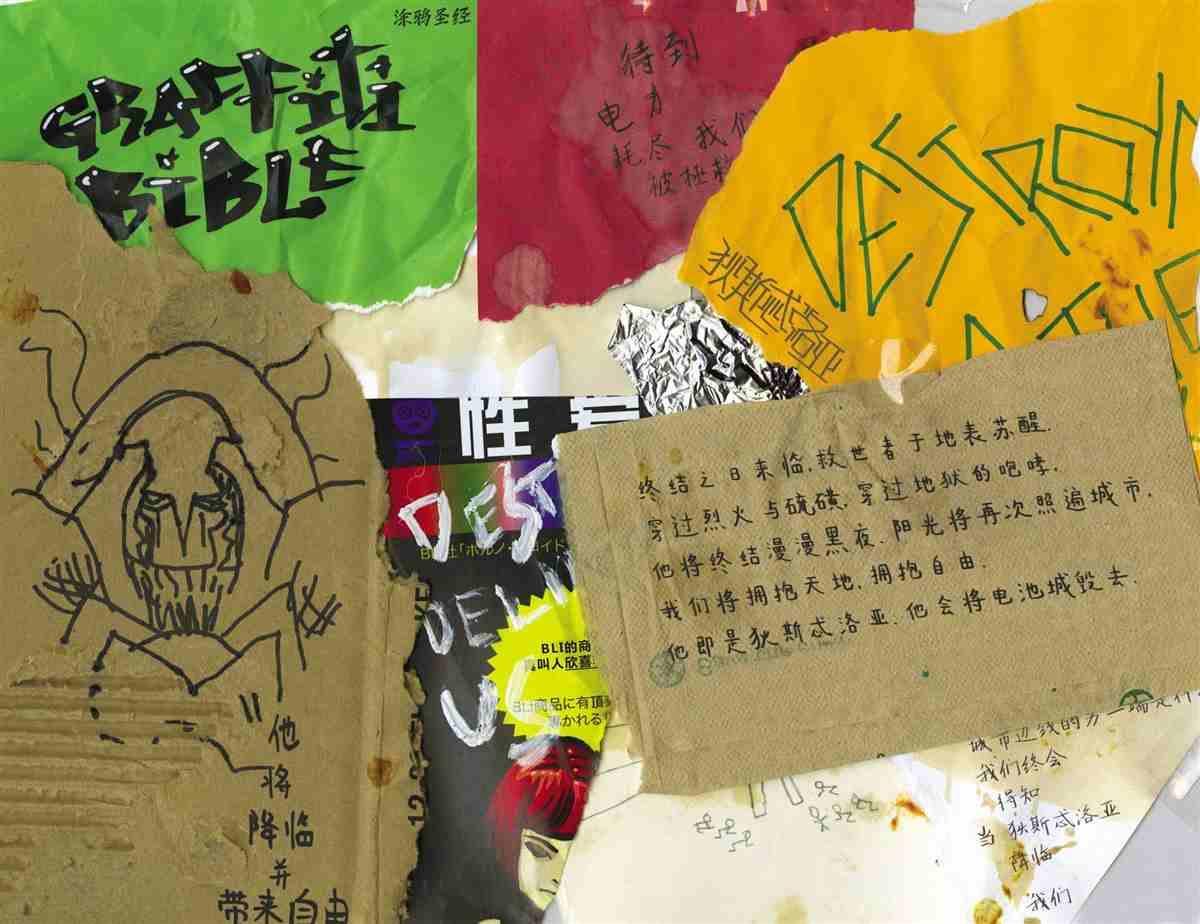 涂鸦圣经
GRAFFiTi
BiBLE
待到
电力
耗尽 我们
被拯救
DESTROYA
狄斯忒洛亚
性爱
DEST
DEL
US
BLI的商
叫人欣喜
BLI商品に有頂
惹かれる
终结之日来临.救世者于地表苏醒.
穿过烈火与硫磺.穿过地狱的咆哮.
他将终结漫漫黑夜.阳光将再次照遍城市.
我们将拥抱天地.拥抱自由.
他即是狄斯忒洛亚.他会将电池城毁去.
"他
将
降临
并
带来自由
城市边线的另一端是什
我们终会
得知
当 狄斯忒洛亚
降临
我们